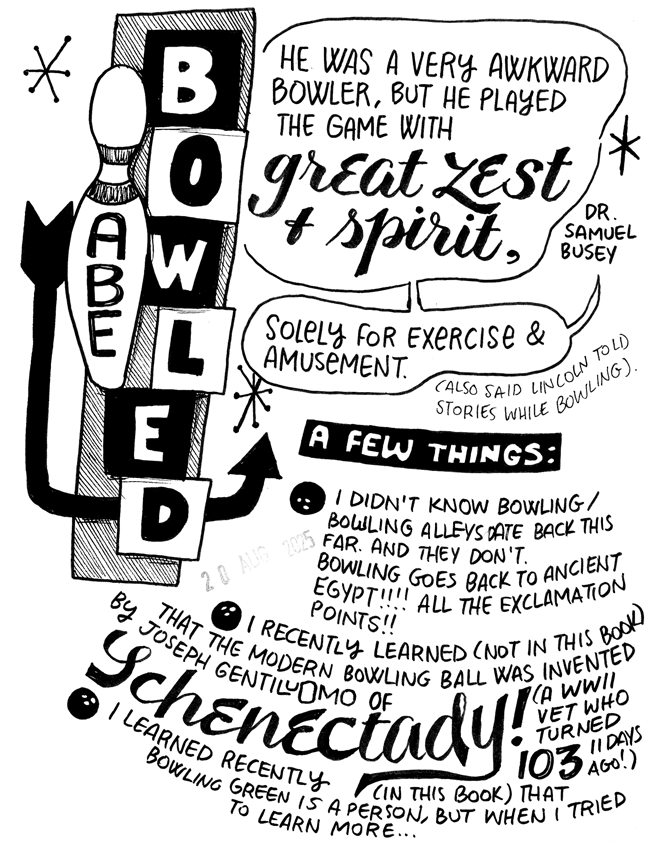 ABE
BOWLED
HE WAS A VERY AWKWARD
BOWLER, BUT HE PLAYED
THE GAME WITH
great zest
+ spirit,
DR.
SAMUEL
BUSEY
SOLELY FOR EXERCISE &
AMUSEMENT.
(ALSO SAID LINCOLN TOLD
STORIES WHILE BOWLING).
A FEW THINGS:
I DIDN'T KNOW BOWLING/
BOWLING ALLEYS DATE BACK THIS
FAR. AND THEY DON'T.
BOWLING GOES BACK TO ANCIENT
EGYPT!!!! ALL THE EXCLAMATION
POINTS!!
20 AUG 2025
I RECENTLY LEARNED (NOT IN THIS BOOK)
THAT THE MODERN BOWLING BALL WAS INVENTED
BY JOSEPH GENTILUOMO OF
Schenectady!
(A WWII
VET WHO
TURNED
103 11 DAYS
AGO!)
I LEARNED RECENTLY
(IN THIS BOOK) THAT
BOWLING GREEN IS A PERSON, BUT WHEN I TRIED
TO LEARN MORE...